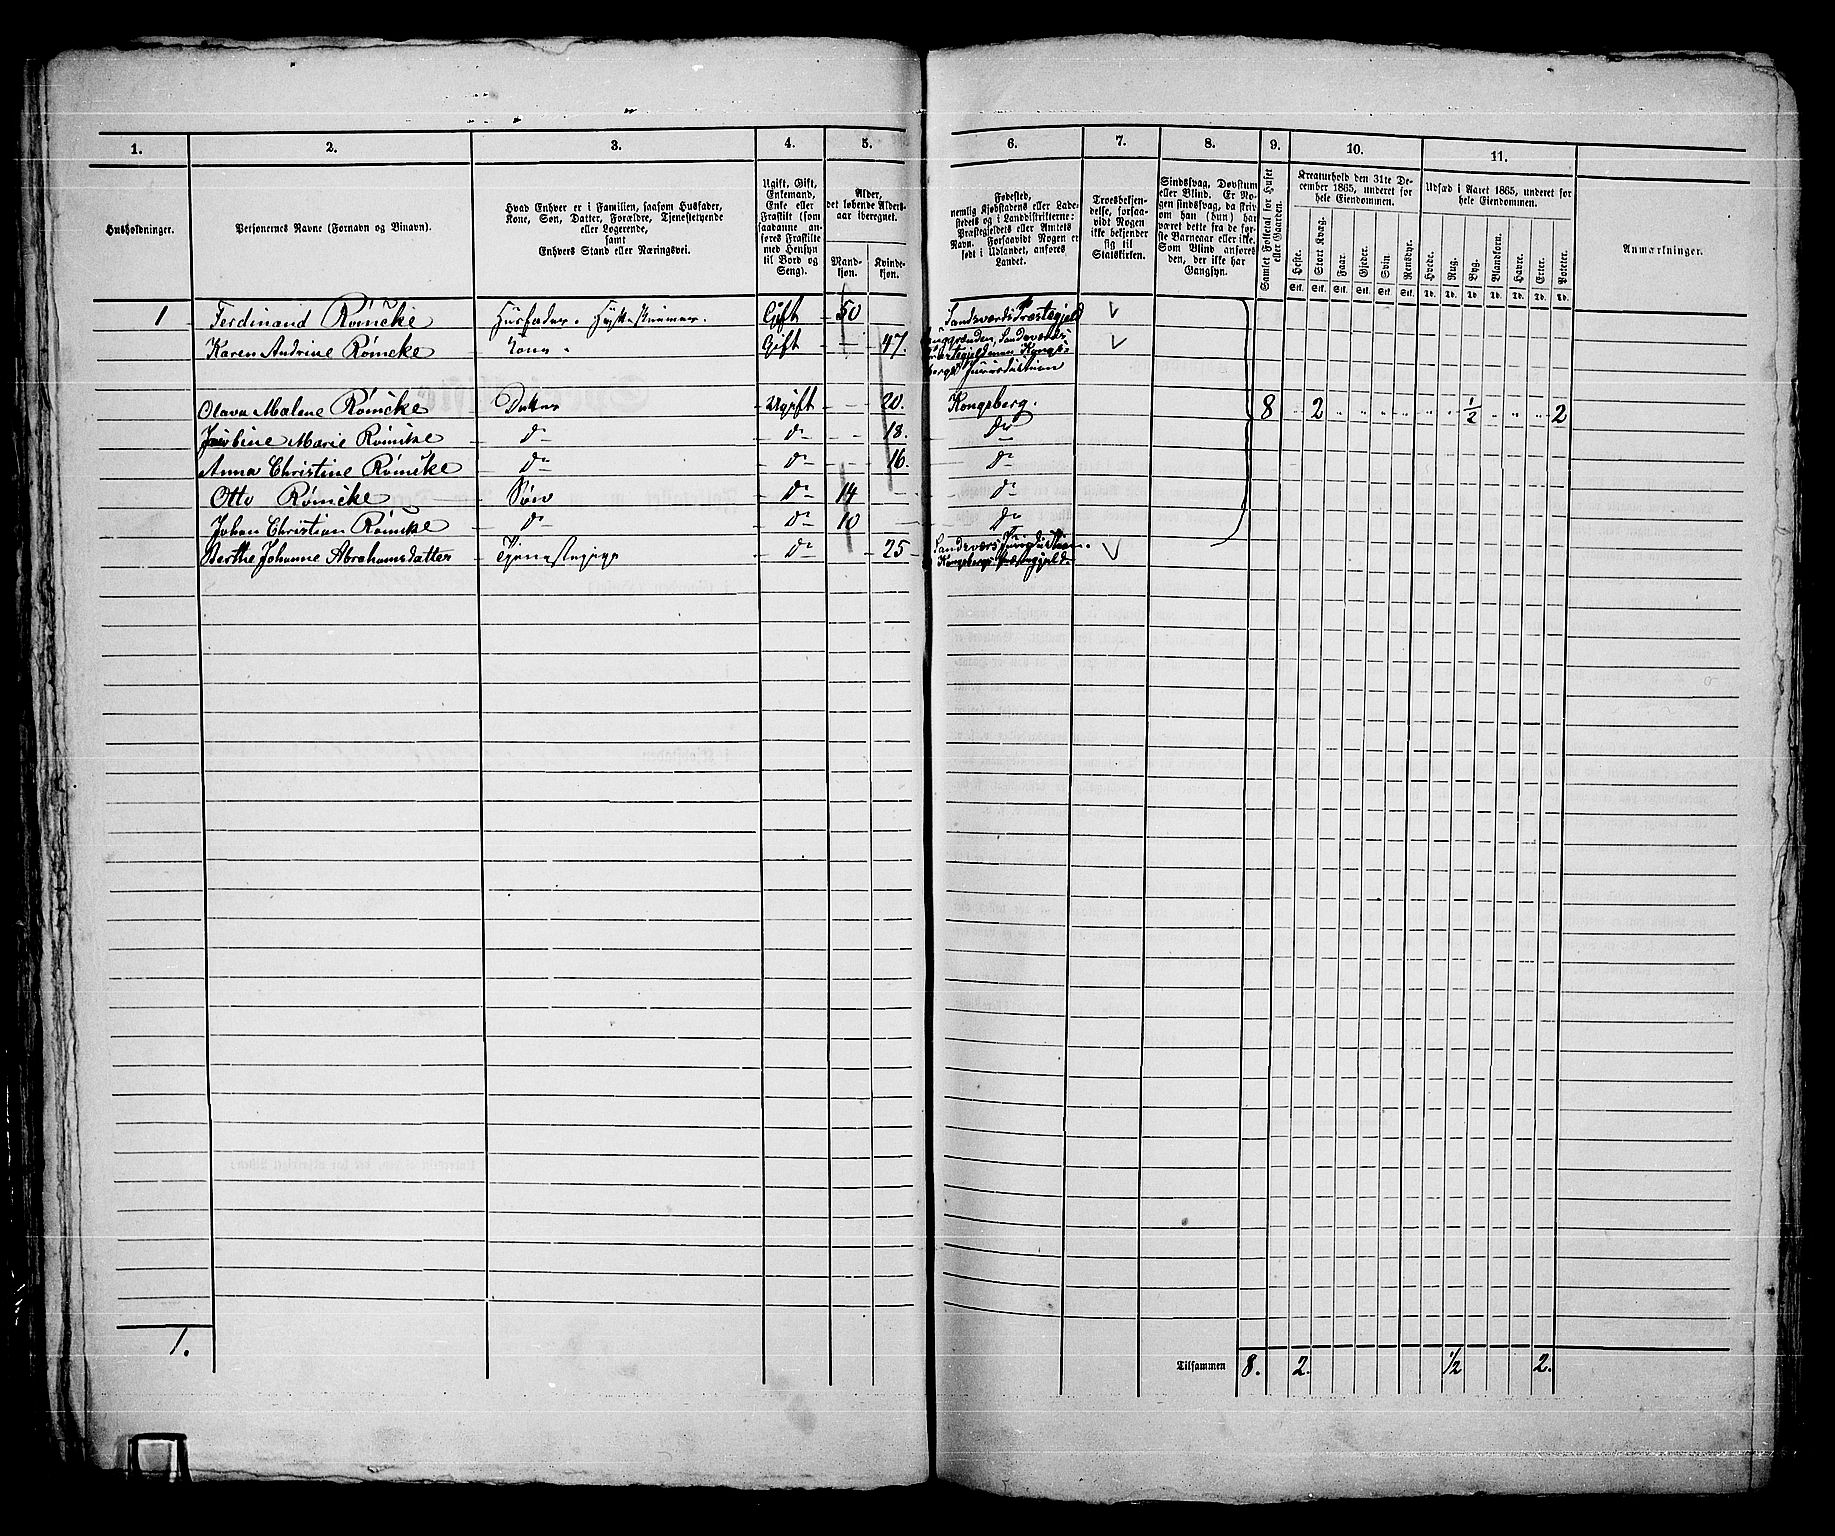 1. 2. 3. 4. 5. 6. 7. 8. 9. 10. 11.
Husholdninger.
Personernes Navne (Fornavn og Tilnavn).
Hvad Enhver er i Familien, saasom Husfader,
Kone, Søn, Datter, Forældre, Tjenestetyende
eller Logerende,
samt
Enhvers Stand eller Næringsvei.
Ugift, Gift,
Enkemand,
Enke eller
Fraskilt (som
saadanne an-
føres Fraskilte
med Hensyn
til Bord og
Seng).
Alder,
det løbende Alders-
aar iberegnet.
Mand-
kjøn.
Kvinde-
kjøn.
Fødested,
nemlig Kjøbstadens eller Lade-
stedets og i Landdistrikterne:
Præstegjeldets eller Amtets
Navn. Forsaavidt Nogen er
født i Udlandet, anføres
Landet.
Troesbekjen-
delse, forsaa-
vidt Nogen
ikke bekjender
sig til
Statskirken.
Sindssvag, Døvstum
eller Blind. Er No-
gen sindssvag, da skriv
om han (hun) har
været dette fra de før-
ste Barneaar eller ikke.
Som Blind anføres
den, der ikke har
Gangsyn.
Samlet Folketal for Huset
eller Gaarden.
Kreaturhold den 31te De-
cember 1865, underet for
hele Eiendommen.
Heste. Stort Kvæg. Faar. Gjeder. Svin. Rensdyr.
Stk. Stk. Stk. Stk. Stk. Stk.
Udsæd i Aaret 1865, underet for
hele Eiendommen.
Hvede. Rug. Byg. Blandkorn. Havre. Erter. Poteter.
Td. Td. Td. Td. Td. Td. Td.
Anmærkninger.
1 Ferdinand Römcke Husfader. Gift 50 Sandsværds Præstegjeld
Karen Andrine Römcke Kone Gift 47. Sandsværds
Jurisdiction
Olava Malene Römcke Datter Ugift 20. Kongsberg. 8 2 1/2 2
Marie Römcke do do 18. do
Anna Christine Römcke do do 16. do
Otto Römcke Søn do 14 do
Johan Christian Römcke do do 10 do
Berthe Johanne Abrahamsdatter Tjenestepige do 25 Sandsværs Jurisdiction.
Kongsbergs Præstegjeld
1.
Tilsammen 8. 2. 1/2 2.